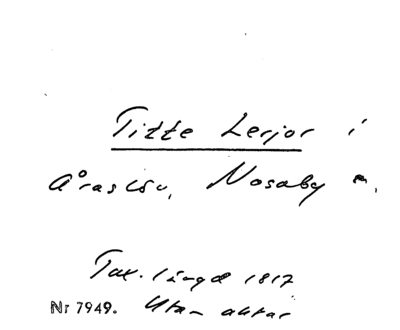 Titte Lerjor i
Åraslöv, Nosaby s.
Tax. längd 1817
Nr 7949. Utan aktar